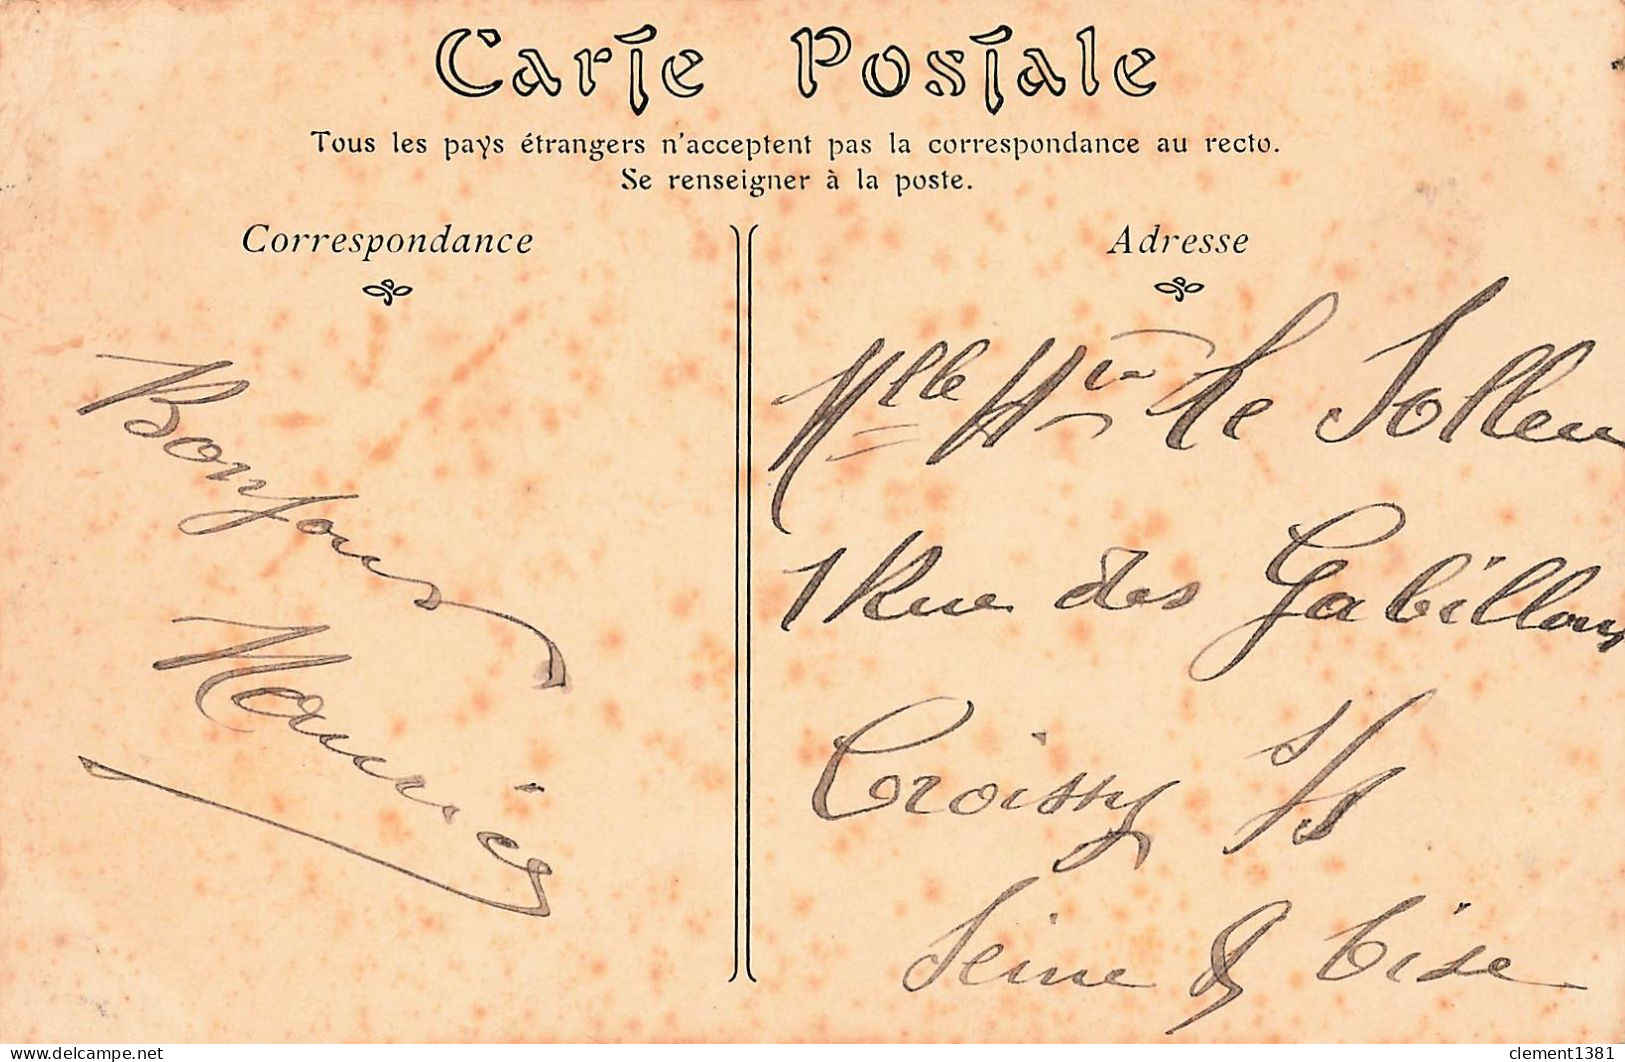 Carte Postale
Tous les pays étrangers n'acceptent pas la correspondance au recto.
Se renseigner à la poste.
Correspondance
Bonjour
Maurice
Adresse
Mlle Le Sollen
1 Rue des Gabillons
Croissy s/s
Seine & Oise
delcampe.net
clement1381